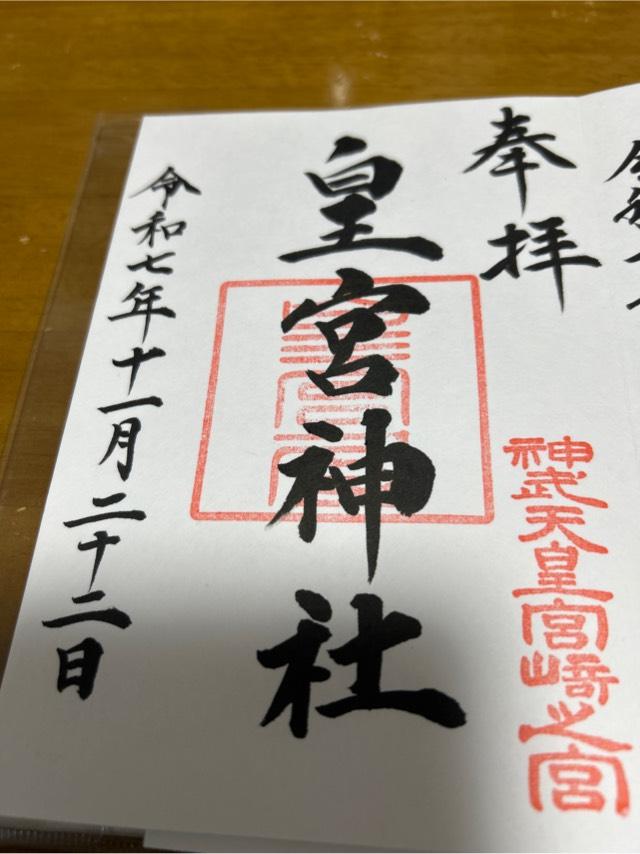 奉拝
神武天皇宮崎之宮
皇宮神社
令和七年十一月二十二日